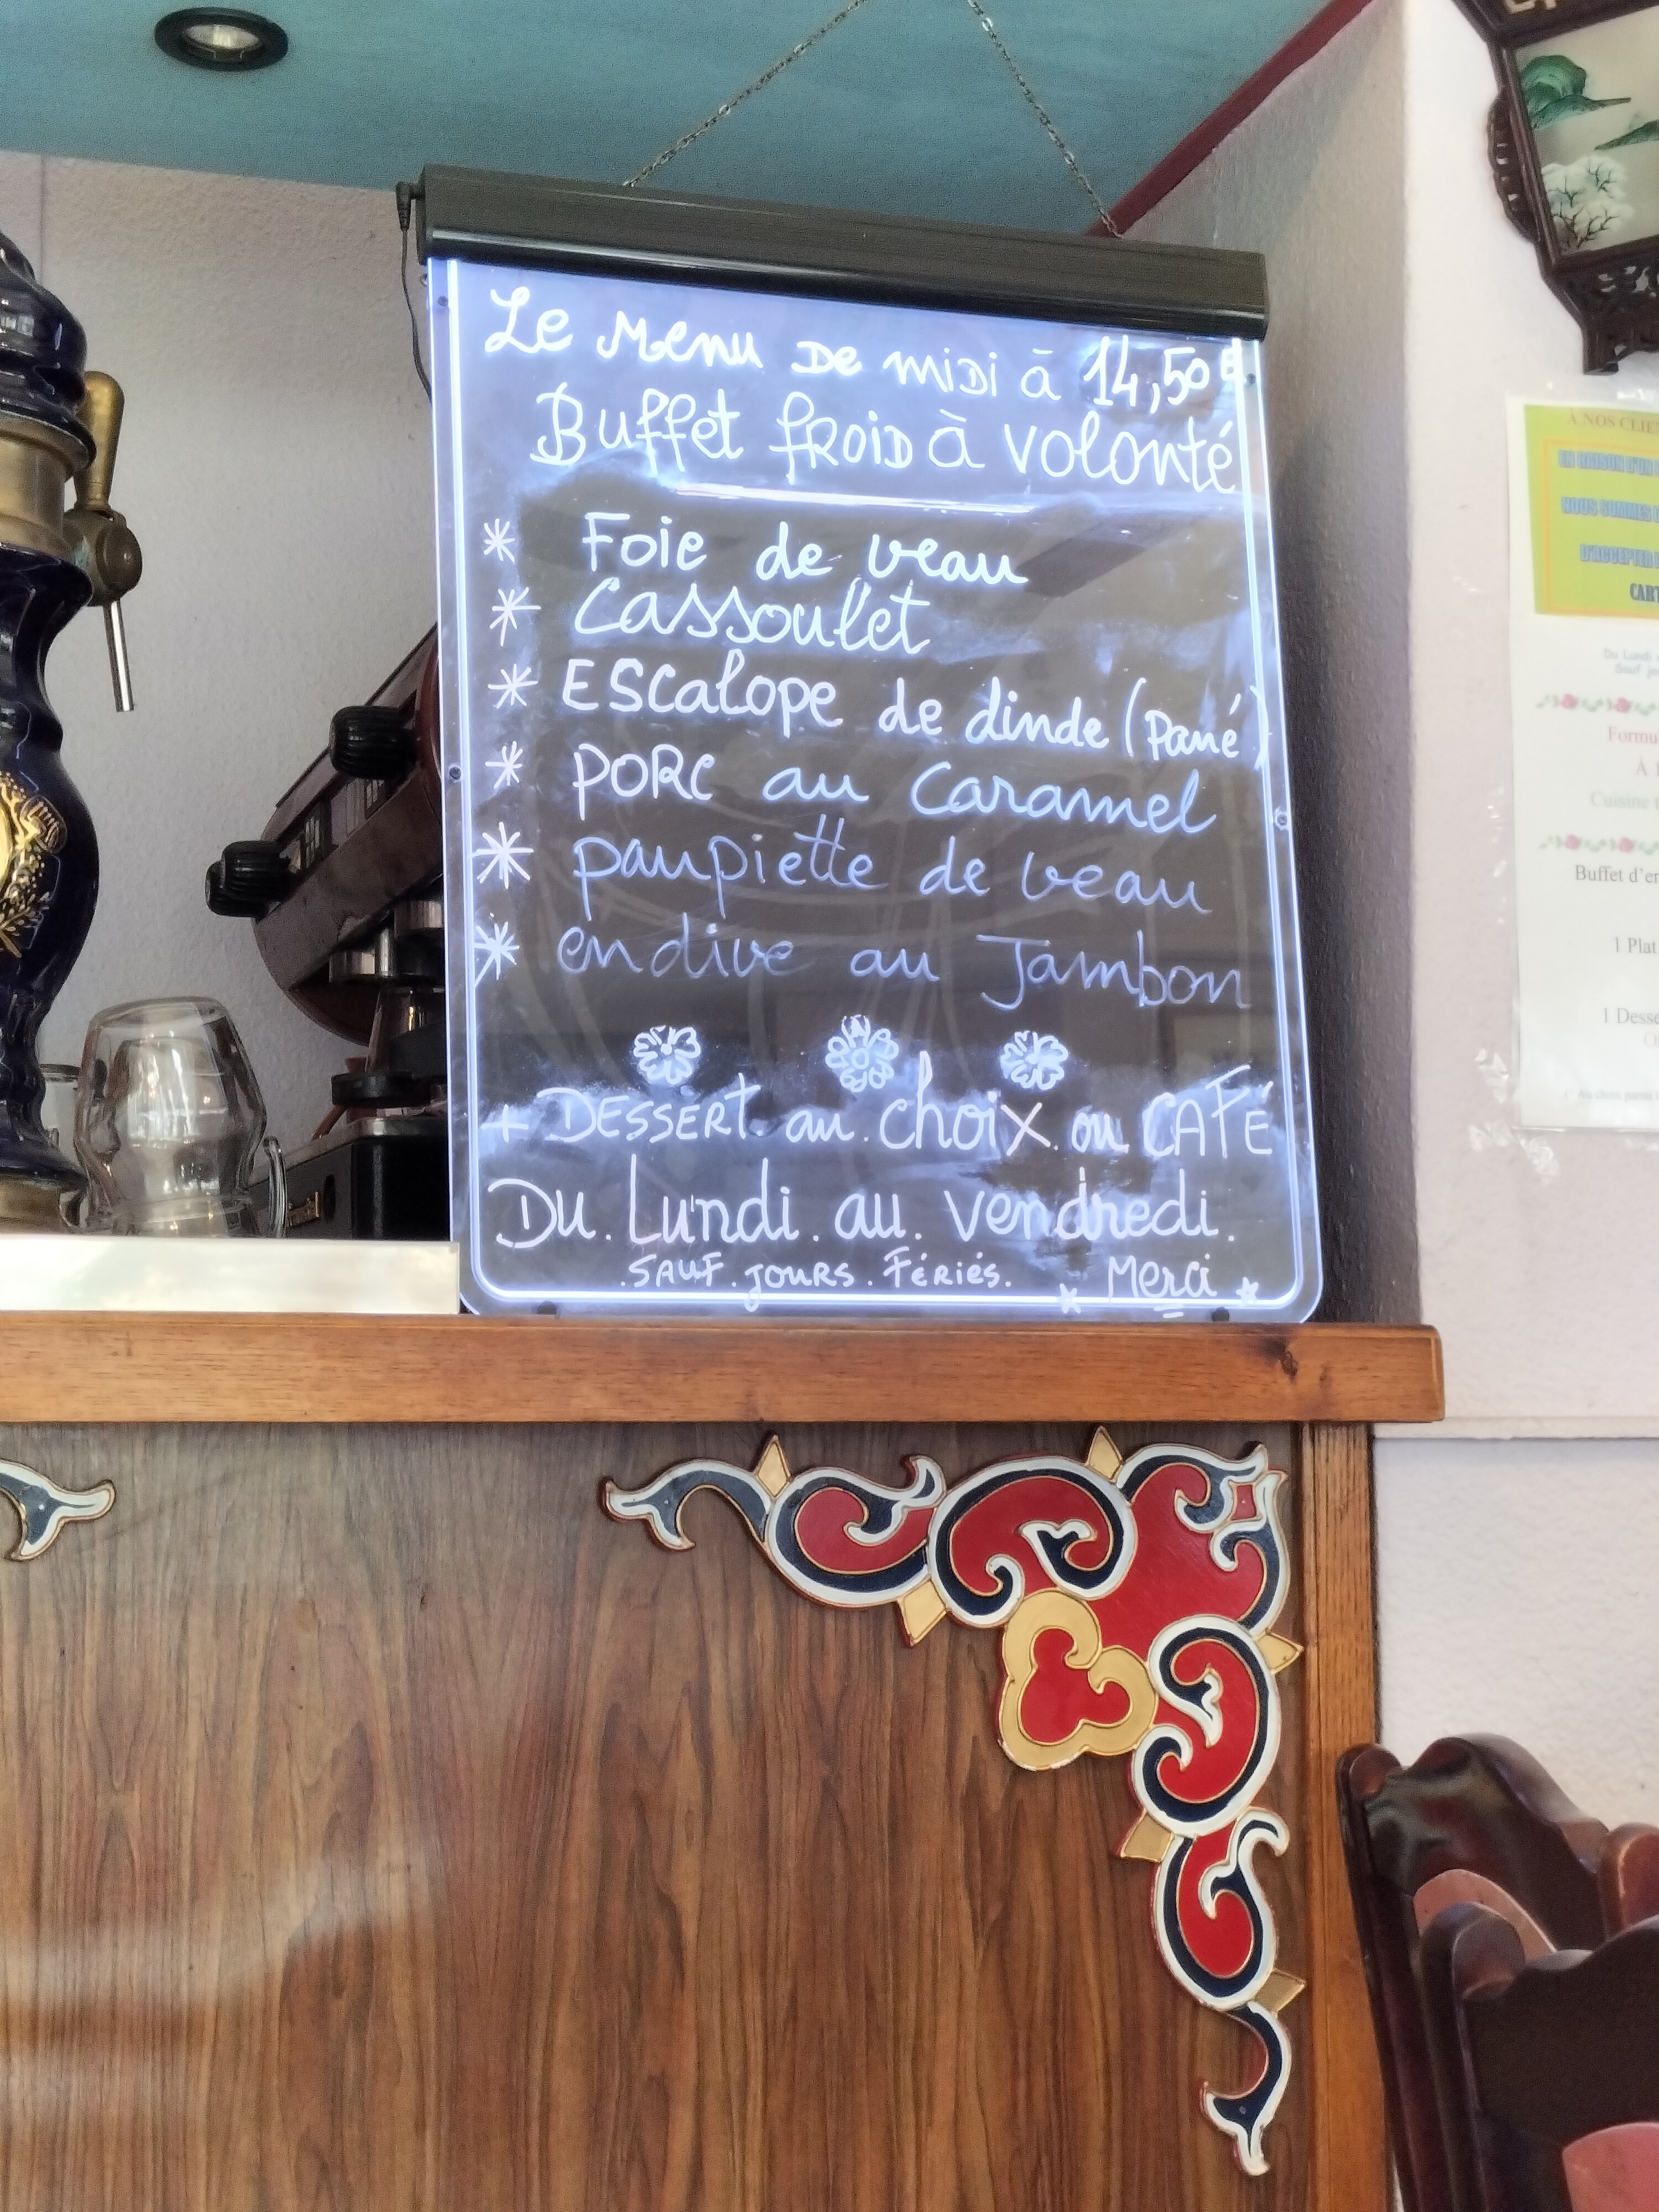 Le Menu De miDi à 14,50€
Buffet fROiD à volonté
* Foie de veau
* Cassoulet
* Escalope de dinde (pané)
* PORC au Caramel
* paupiette de veau
* endive au Jambon
+ DESSERT. au. choix. ou CAFÉ
DU. Lundi. au. vendredi.
. SAUF. JOURS. FÉRIÉS. * Merci *
A NOS CLIEN
EN RAISON D'UN
NOUS SOMMES
D'ACCEPTER
CART
Du Lundi
Sauf
Formu
À 1
Cuisine
Buffet d'en
1 Plat
1 Desse